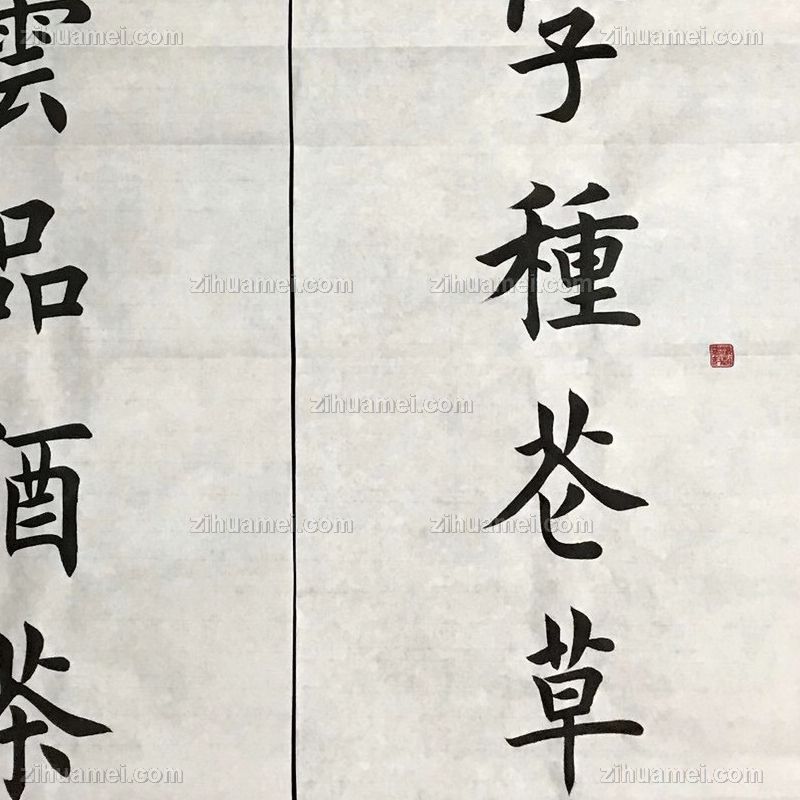 種苍草
雲品酒茶
zihuamei.com
zihuamei.com
zihuamei.com
zihuamei.com
zihuamei.com
zihuamei.com
zihuamei.com
zihuamei.com
zihuamei.com
zihuamei.com
zihuamei.com